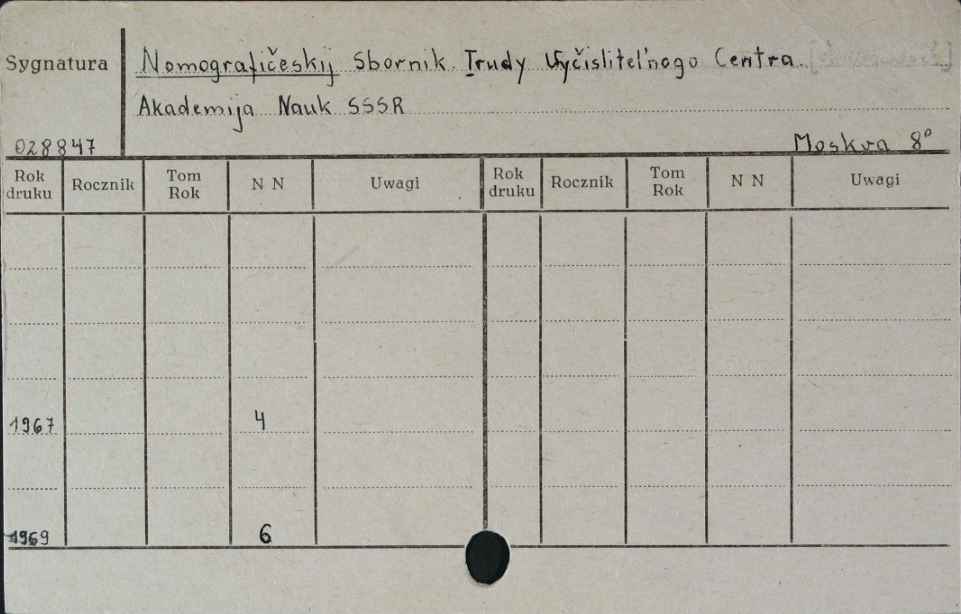 Sygnatura Nomografičeskij Sbornik. Trudy Vyčislitel'nogo Centra.
Akademija Nauk SSSR
028847 Moskva 8°
Rok druku Rocznik Tom Rok N N Uwagi Rok druku Rocznik Tom Rok N N Uwagi
1967 4
1969 6